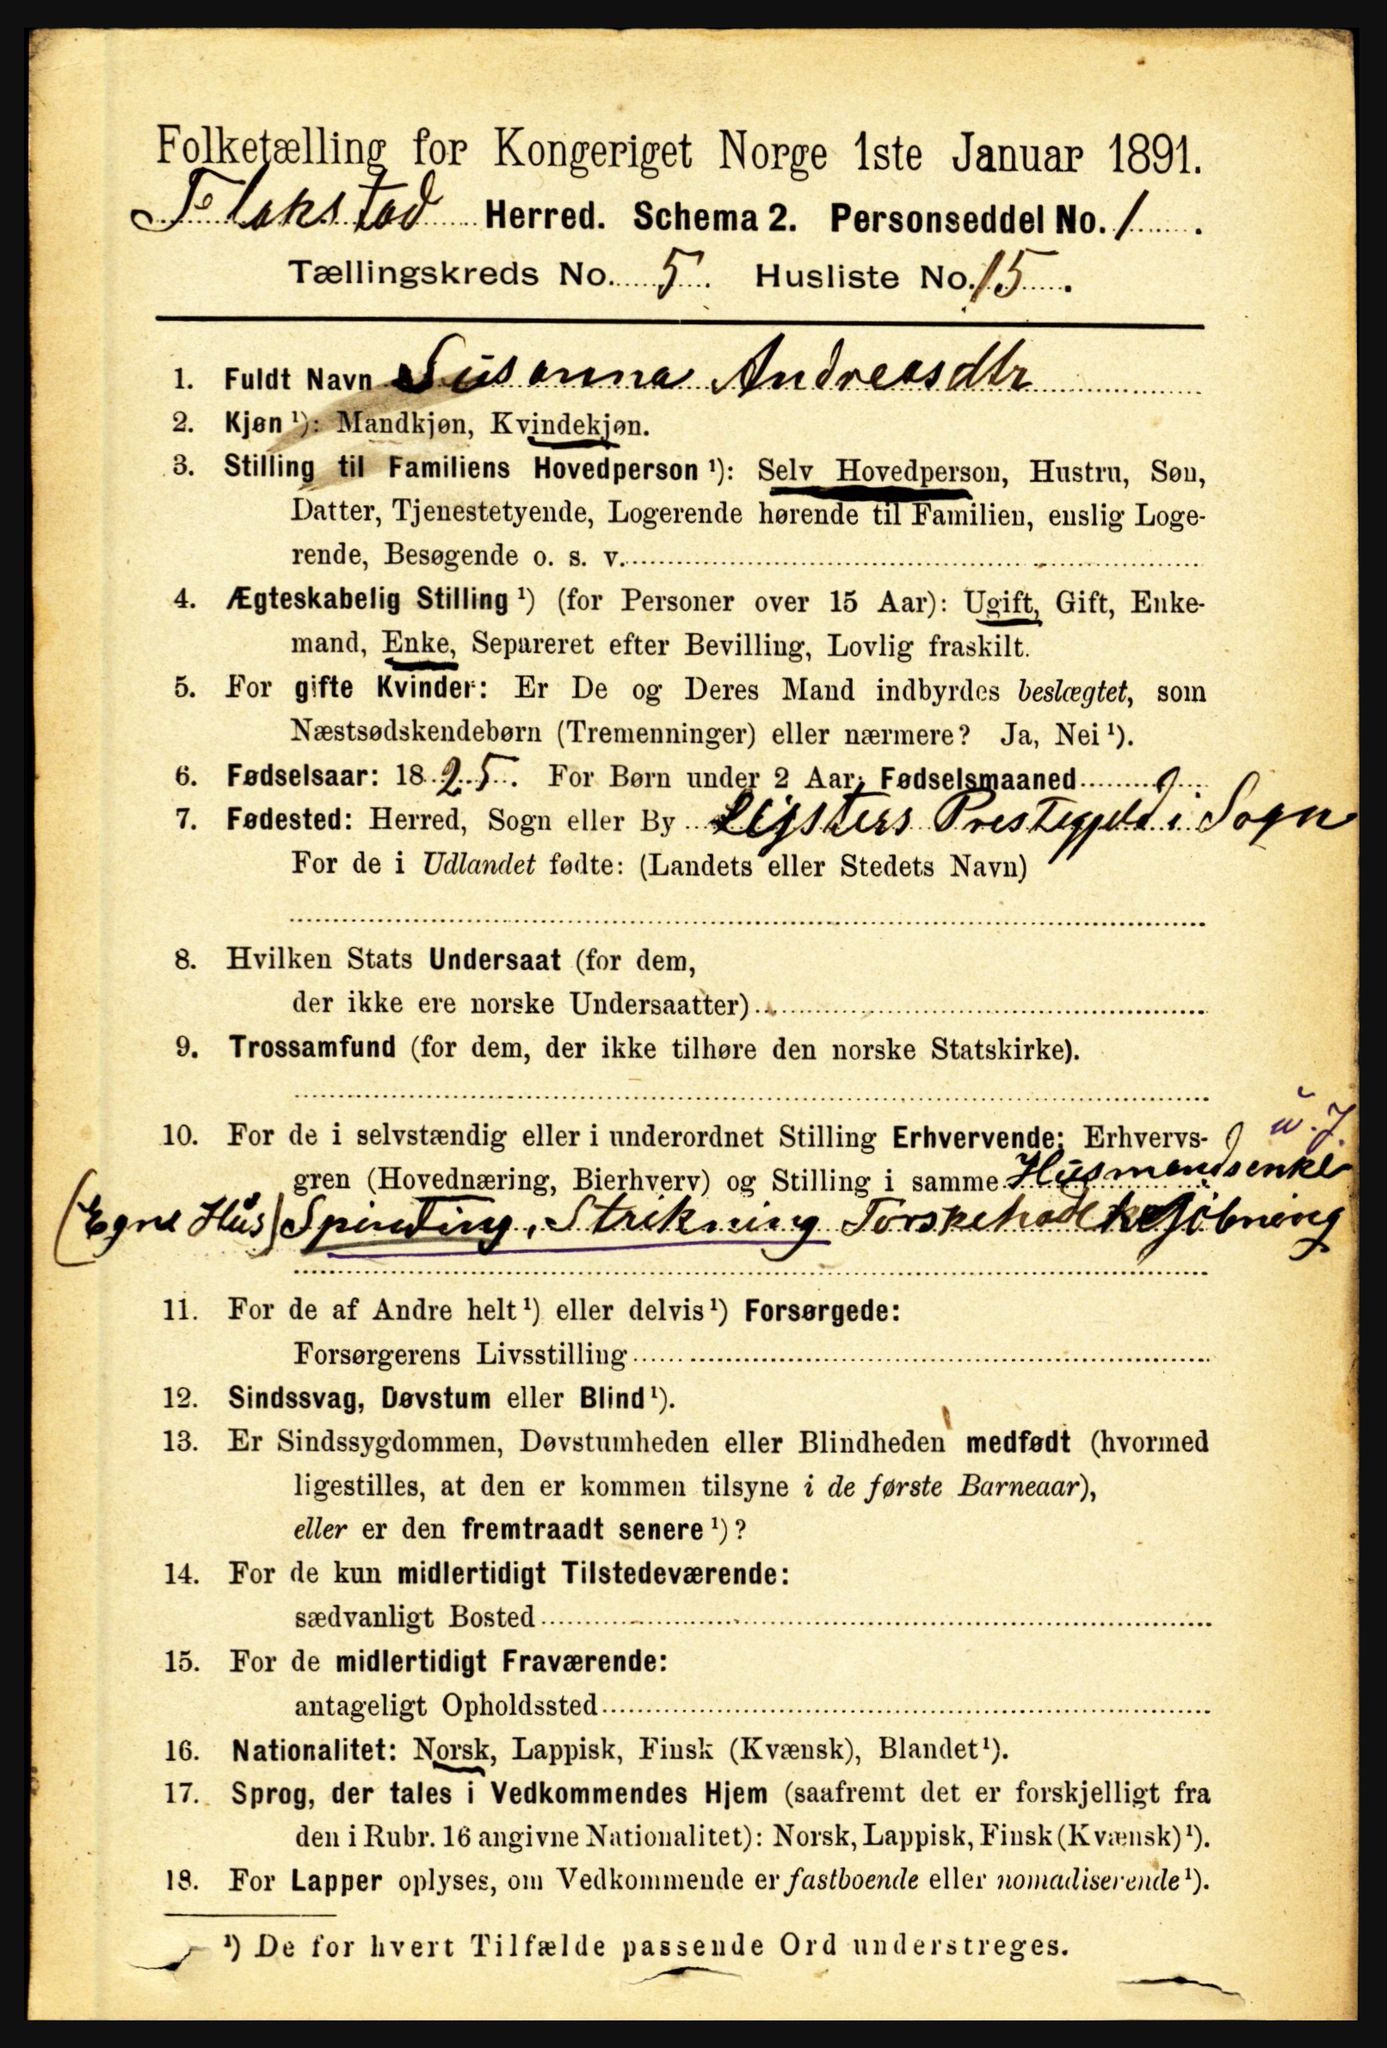 Folketælling for Kongeriget Norge 1ste Januar 1891.
Flakstad Herred. Schema 2. Personseddel No. 1.
Tællingskreds No. 5. Husliste No. 15.
1. Fuldt Navn Susanna Andreasdtr
2. Kjøn ¹): Mandkjøn, Kvindekjøn.
3. Stilling til Familiens Hovedperson ¹): Selv Hovedperson, Hustru, Søn,
Datter, Tjenestetyende, Logerende hørende til Familien, enslig Loge-
rende, Besøgende o. s. v.
4. Ægteskabelig Stilling ¹) (for Personer over 15 Aar): Ugift, Gift, Enke-
mand, Enke, Separeret efter Bevilling, Lovlig fraskilt.
5. For gifte Kvinder: Er De og Deres Mand indbyrdes beslægtet, som
Næstsødskendebørn (Tremenninger) eller nærmere? Ja, Nei ¹).
6. Fødselsaar: 1825. For Børn under 2 Aar, Fødselsmaaned
7. Fødested: Herred, Sogn eller By Lijsters Prestegjeld i Sogn
For de i Udlandet fødte: (Landets eller Stedets Navn)
8. Hvilken Stats Undersaat (for dem,
der ikke ere norske Undersaatter)
9. Trossamfund (for dem, der ikke tilhøre den norske Statskirke).
10. For de i selvstændig eller i underordnet Stilling Erhvervende: Erhvervs-
gren (Hovednæring, Bierhverv) og Stilling i samme Husmandsenke
(Egne Hus) Spinding, Strikning Torskehode kjøbning
11. For de af Andre helt ¹) eller delvis ¹) Forsørgede:
Forsørgerens Livsstilling
12. Sindssvag, Døvstum eller Blind ¹).
13. Er Sindssygdommen, Døvstumheden eller Blindheden medfødt (hvormed
ligestilles, at den er kommen tilsyne i de første Barneaar),
eller er den fremtraadt senere ¹)?
14. For de kun midlertidigt Tilstedeværende:
sædvanligt Bosted
15. For de midlertidigt Fraværende:
antageligt Opholdssted
16. Nationalitet: Norsk, Lappisk, Finsk (Kvænsk), Blandet ¹).
17. Sprog, der tales i Vedkommendes Hjem (saafremt det er forskjelligt fra
den i Rubr. 16 angivne Nationalitet): Norsk, Lappisk, Finsk (Kvænsk) ¹).
18. For Lapper oplyses, om Vedkommende er fastboende eller nomadiserende ¹).
¹) De for hvert Tilfælde passende Ord understreges.